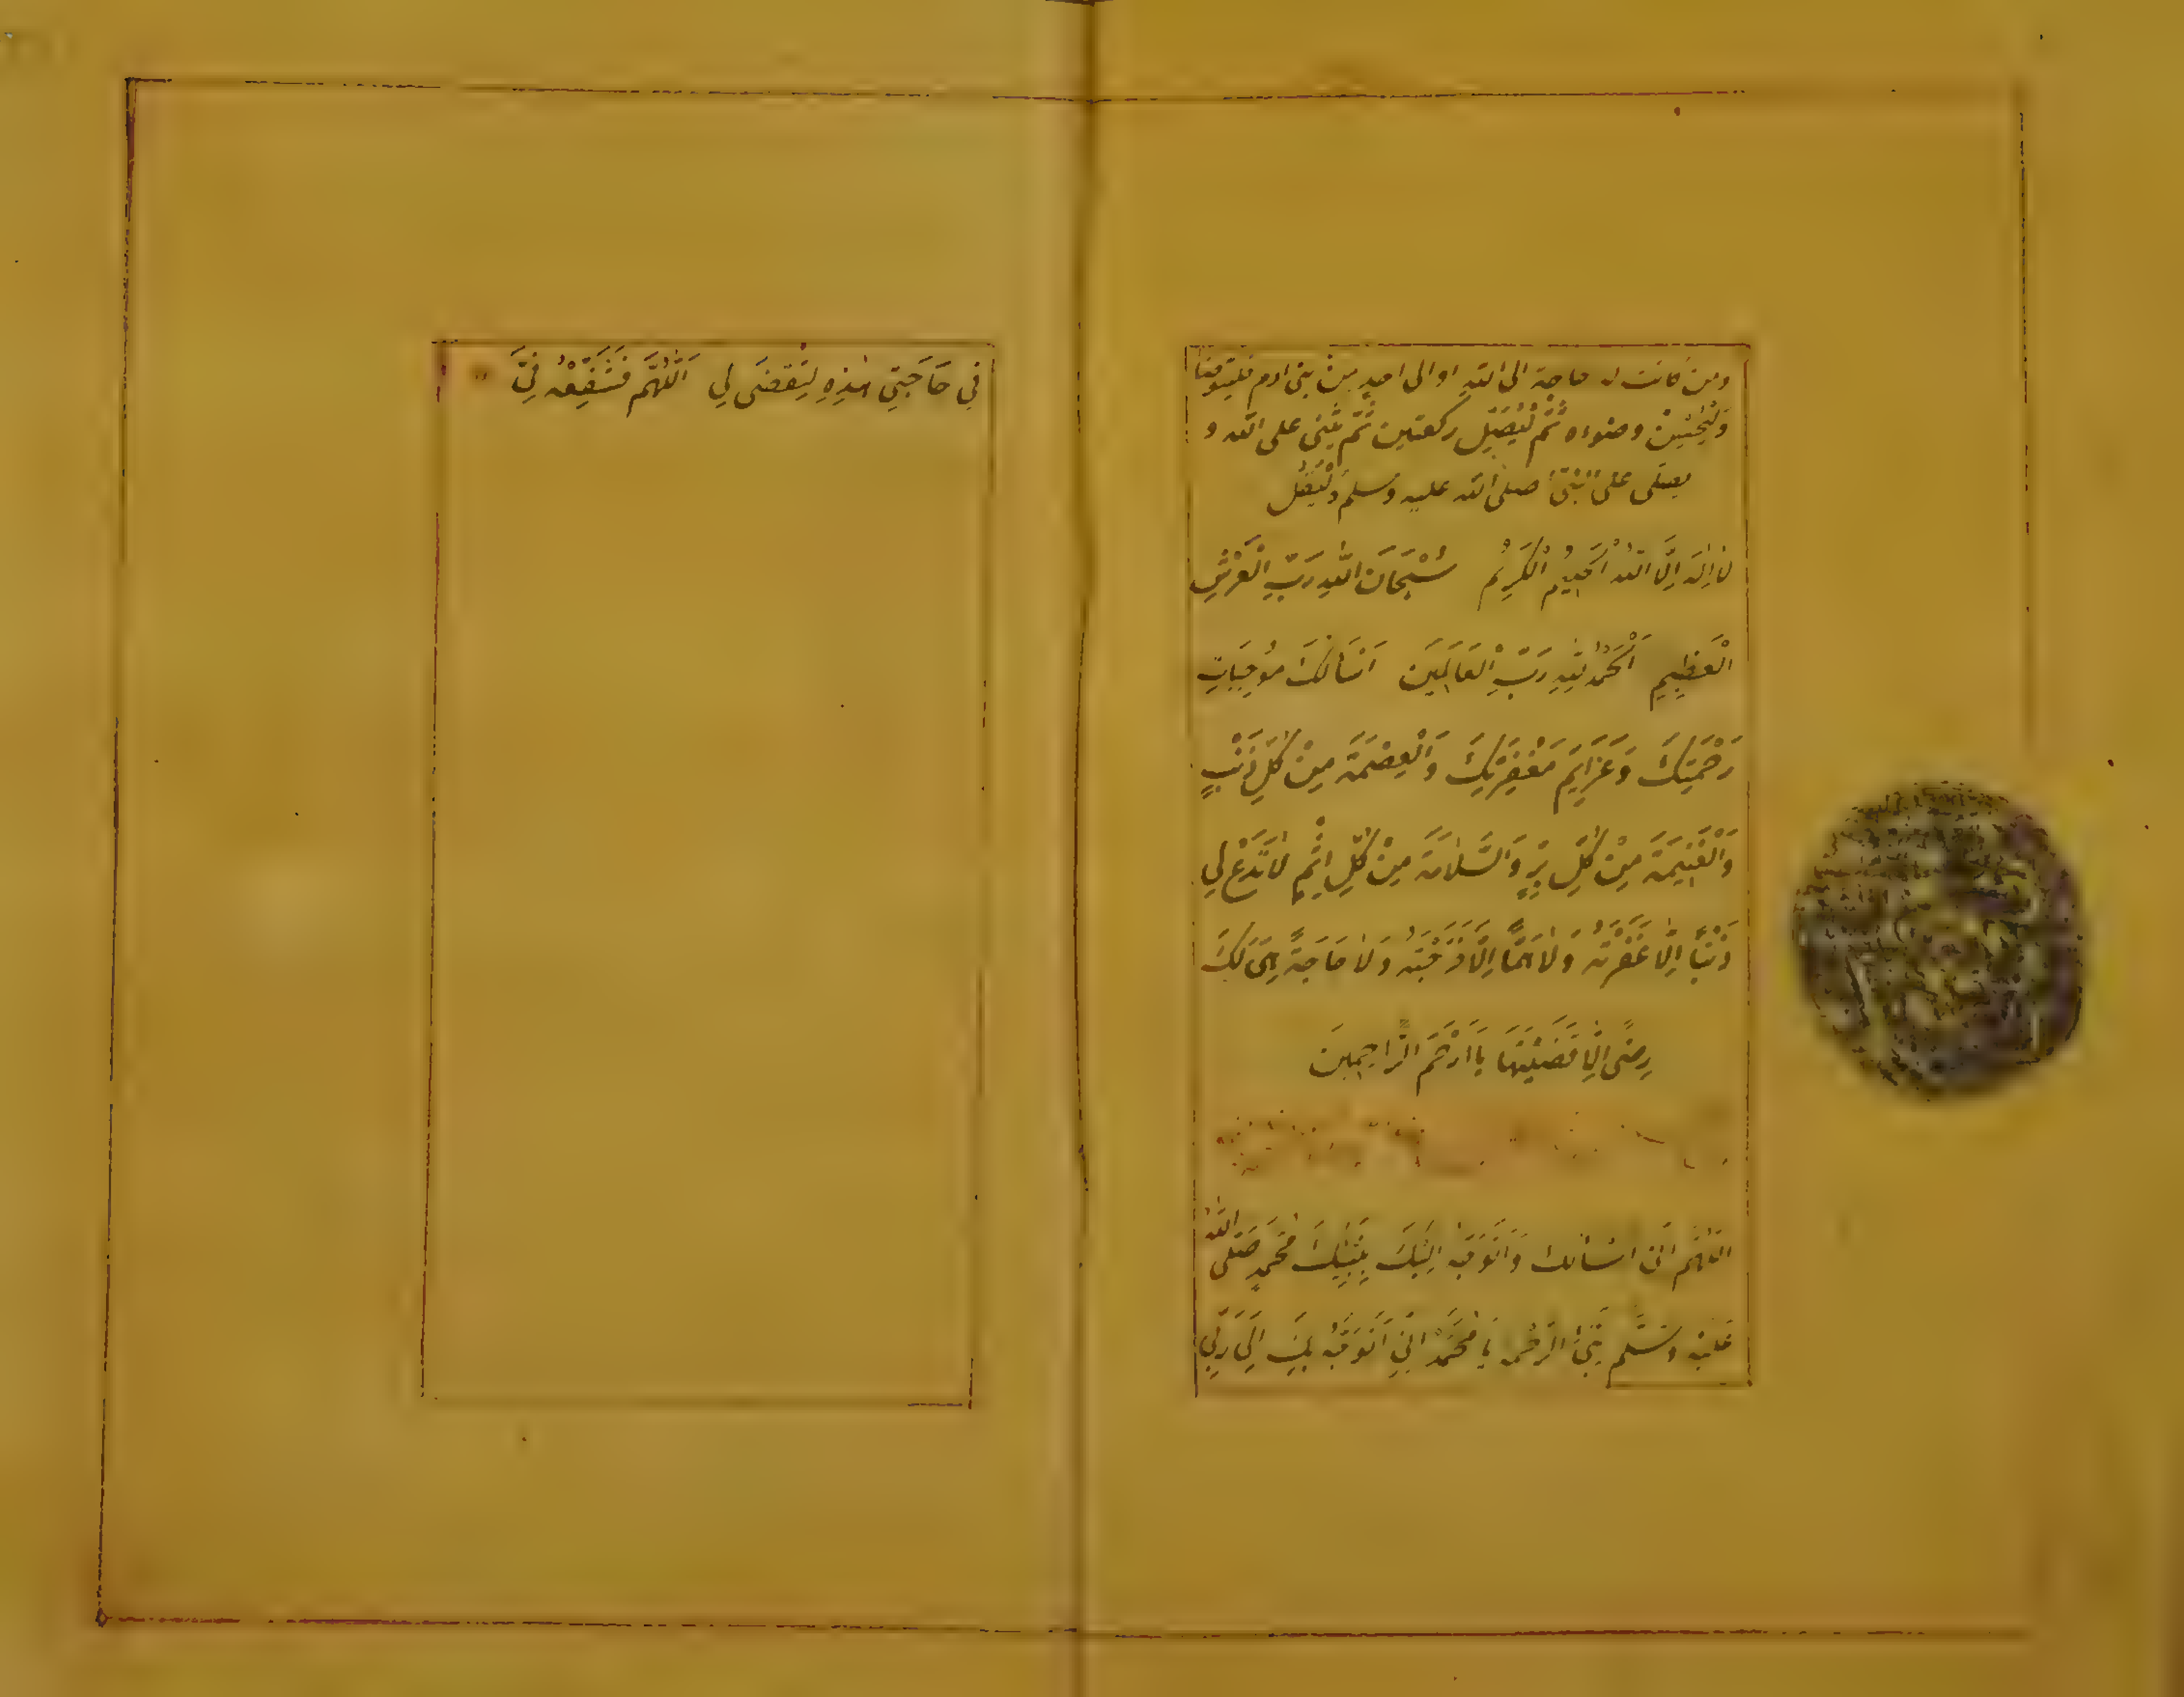 ومن كانت له حاجة الى الله او الى احد من بنى ادم فليتوضأ
وَلْيُحْسِنْ وضوءه ثُمَّ لْيُصَلِّ ركعتين ثُمَّ يُثْنِى على الله و
يصلى على النَّبِىّ صلى الله عليه وسلم وَلْيَقُل
لَا اِلٰهَ اِلَّا اللّٰهُ الْحَلِيمُ الْكَرِيْمُ سُبْحَانَ اللّٰهِ رَبِّ الْعَرْشِ
الْعَظِيمِ اَلْحَمْدُ لِلّٰهِ رَبِّ الْعَالَمِينَ اَسْأَلُكَ مُوجِبَاتِ
رَحْمَتِكَ وَعَزَايِمَ مَغْفِرَتِكَ وَالْعِصْمَةَ مِنْ كُلِّ ذَنْبٍ
وَالْغَنِيمَةَ مِنْ كُلِّ بِرٍّ وَالسَّلَامَةَ مِنْ كُلِّ اِثْمٍ لَا تَدَعْ لِي
ذَنْبًا اِلَّا غَفَرْتَهُ وَلَا هَمًّا اِلَّا فَرَّجْتَهُ وَلَا حَاجَةً هِيَ لَكَ
رِضًى اِلَّا قَضَيْتَهَا يَا اَرْحَمَ الرَّاحِمِينَ
اللّٰهُمَّ انى اسْأَلك وَاَتَوَجَّهُ اِلَيْكَ بِنَبِيِّكَ مُحَمَّدٍ صَلَّى اللّٰهُ
عَلَيْهِ وَسَلَّم نَبِىِّ الرَّحْمَةِ يَا مُحَمَّدُ اِنِّي اَتَوَجَّهُ بِكَ اِلَى رَبِّي
فِي حَاجَتِي هٰذِهِ لِتُقْضَى لِي اَللّٰهُمَّ فَشَفِّعْهُ فِيَّ